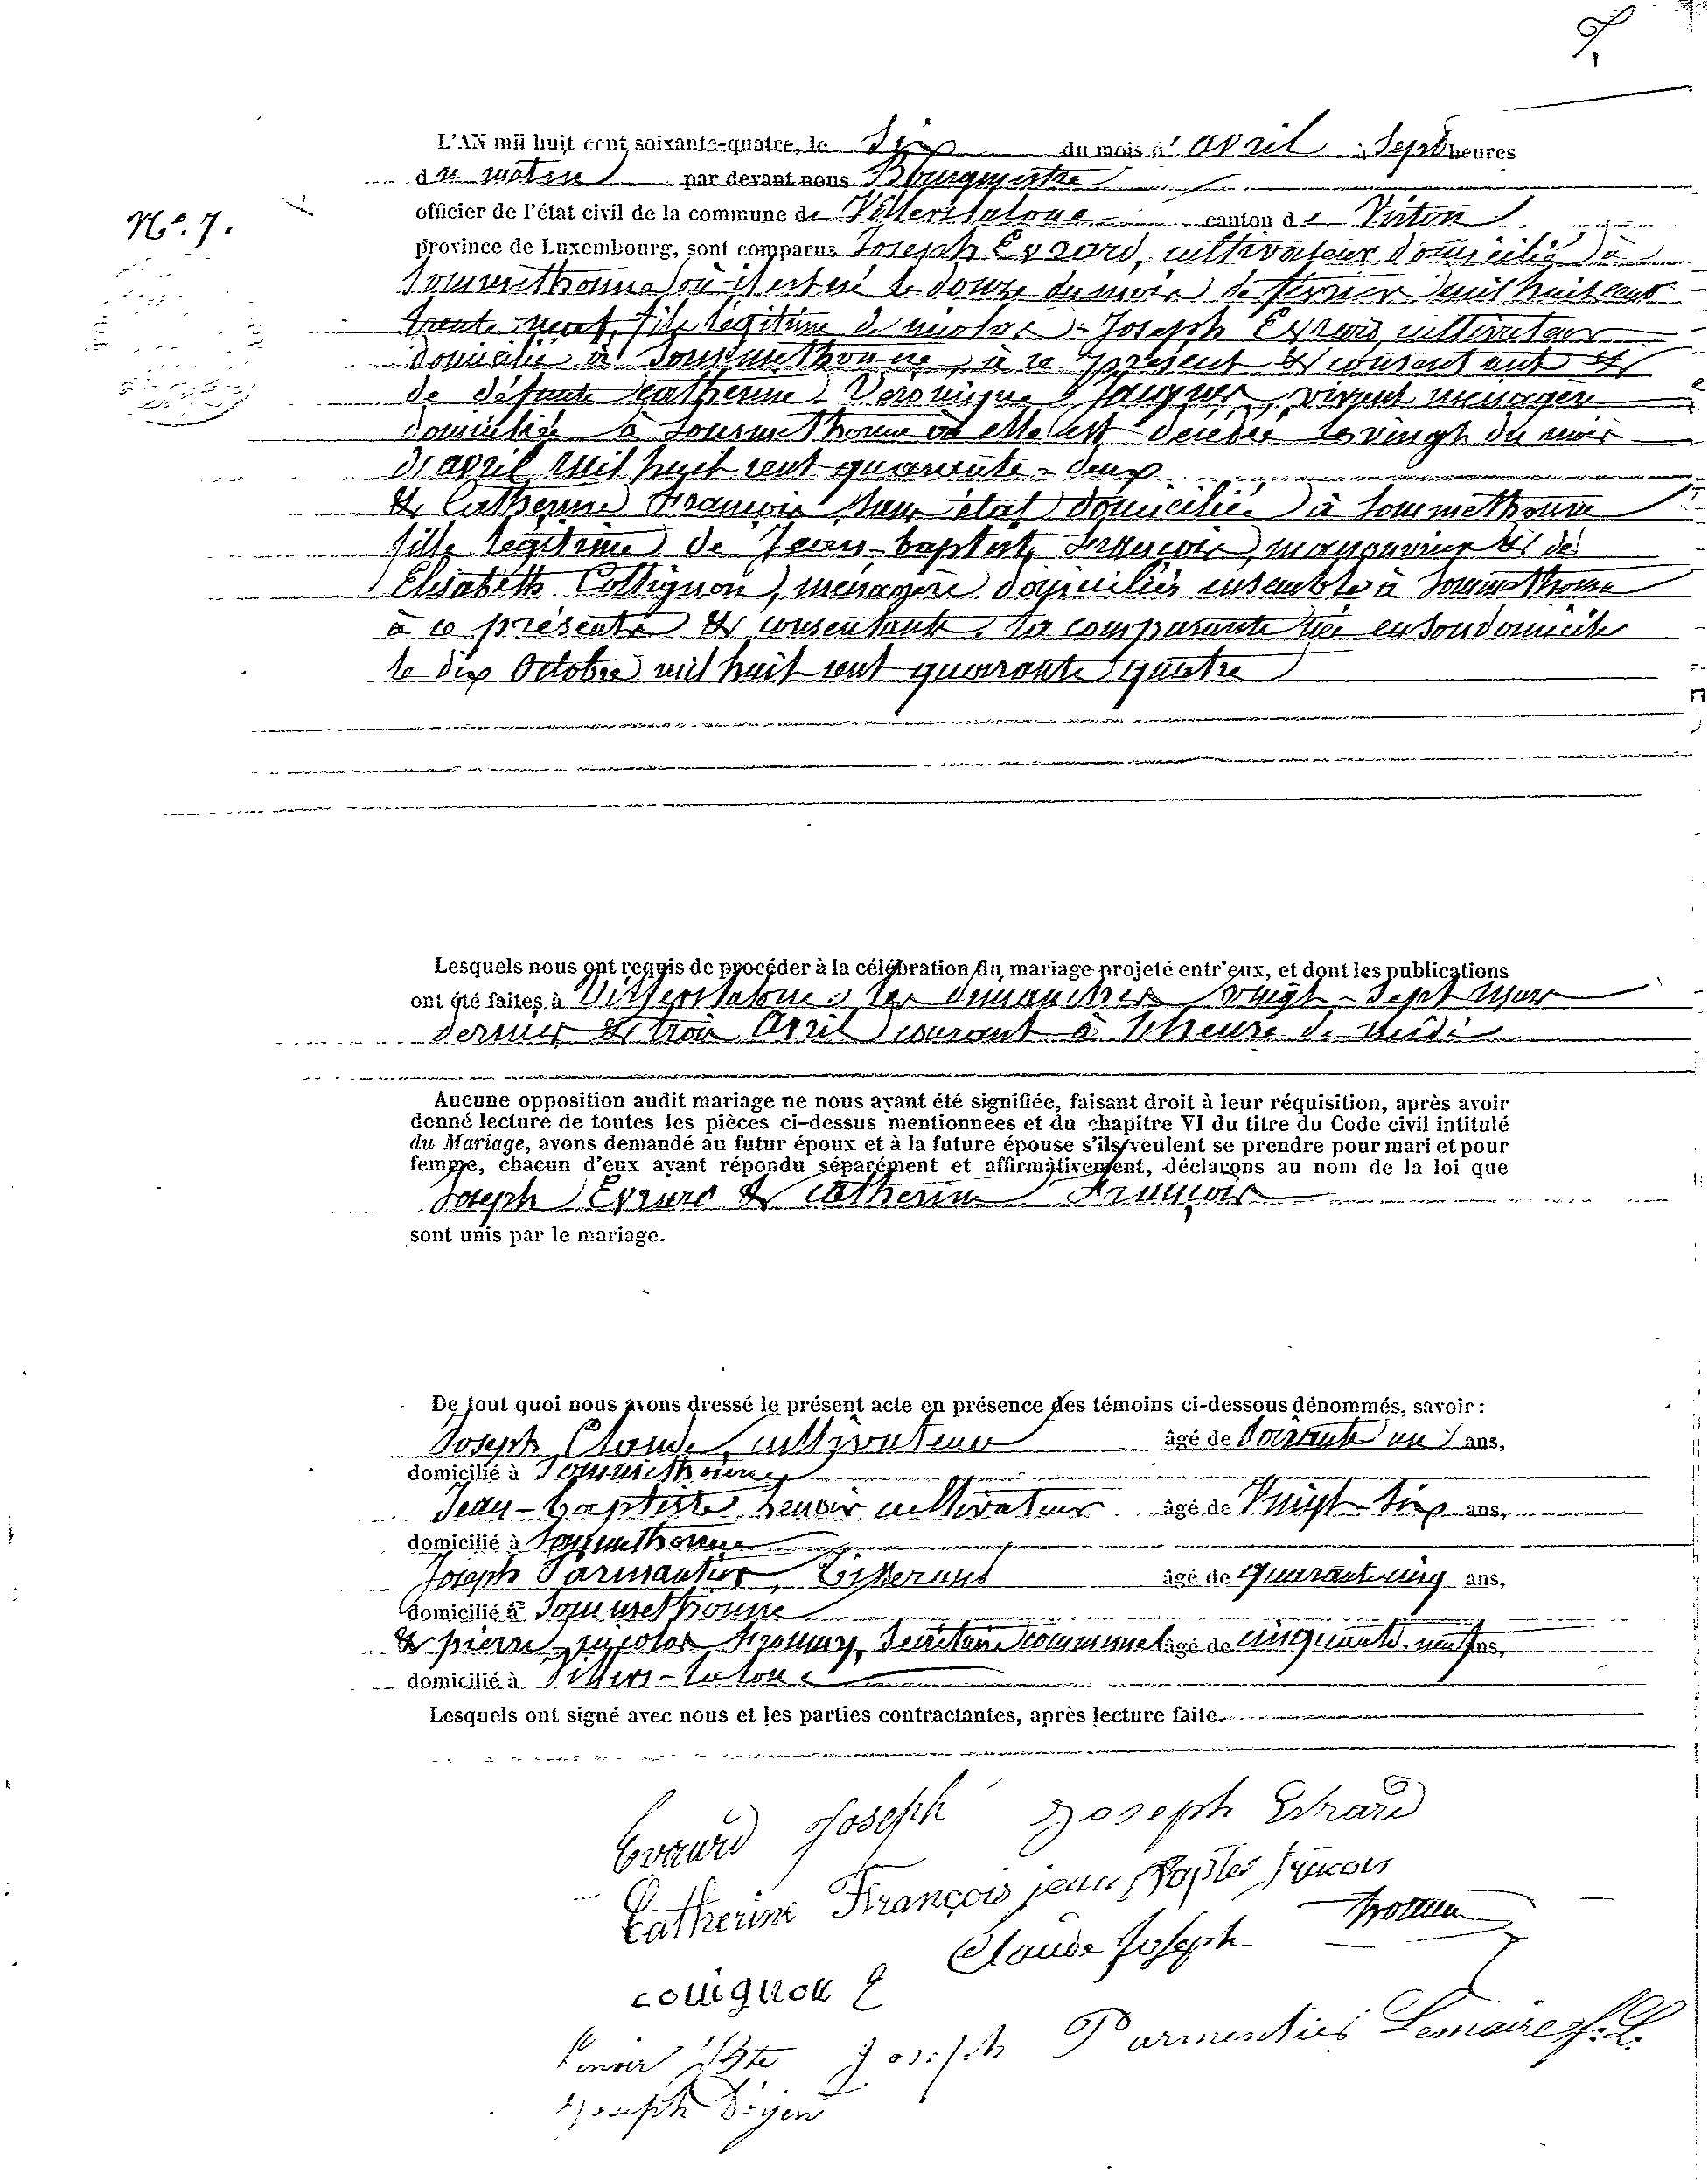 L'AN mil huit cent soixante-quatre, le Six du mois d'avril à Sept heures
du matin par devant nous Bourgmestre
No. 7.
officier de l'état civil de la commune de Villerslaloue canton de Virton
province de Luxembourg, sont comparus Joseph Evrard, cultivateur domicilié à
Sommethonne où il est né le douze du mois de février mil huit cent
trente neuf, fils légitime de nicolas-Joseph Evrard cultivateur
domicilié à Sommethonne, à ce présent & consentant &
de défunte Catherine-Véronique Jacques, vivant ménagère
domiciliée à Sommethonne où elle est décédée le vingt du mois
d'avril mil huit cent quarante-deux
& Catherine François sans état domiciliée à Sommethonne
fille légitime de Jean-baptiste François, manouvrier & de
Elisabeth Collignon, ménagère domiciliés ensemble à Sommethonne
à ce présents & consentants. la comparante née en son domicile
le dix Octobre mil huit cent quarante quatre
Lesquels nous ont requis de procéder à la célébration du mariage projeté entr'eux, et dont les publications
ont été faites à Villerslaloue les dimanches vingt-sept mars
dernier & trois Avril courant à l'heure de midi
Aucune opposition audit mariage ne nous ayant été signifiée, faisant droit à leur réquisition, après avoir
donné lecture de toutes les pièces ci-dessus mentionnees et du chapitre VI du titre du Code civil intitulé
du Mariage, avons demandé au futur époux et à la future épouse s'ils veulent se prendre pour mari et pour
femme, chacun d'eux ayant répondu séparément et affirmativement, déclarons au nom de la loi que
Joseph Evrard & Catherine François
sont unis par le mariage.
De tout quoi nous avons dressé le présent acte en présence des témoins ci-dessous dénommés, savoir :
Joseph Claude, cultivateur âgé de Soixante un ans,
domicilié à Sommethonne
Jean-baptiste Lenoir cultivateur âgé de Vingt Six ans,
domicilié à Sommethonne
Joseph Parmentier, Tisserand âgé de quarante cinq ans,
domicilié à Sommethonne
& pierre nicolas Secrétaire communal âgé de cinquante-neuf ans,
domicilié à Villers-laloue
Lesquels ont signé avec nous et les parties contractantes, après lecture faite.
Evrard Joseph Joseph Evrard
Catherine François jean Baptes françois
Claude Joseph
Collignon E
Lenoir JBte Joseph Parmentier Lemaire
Joseph